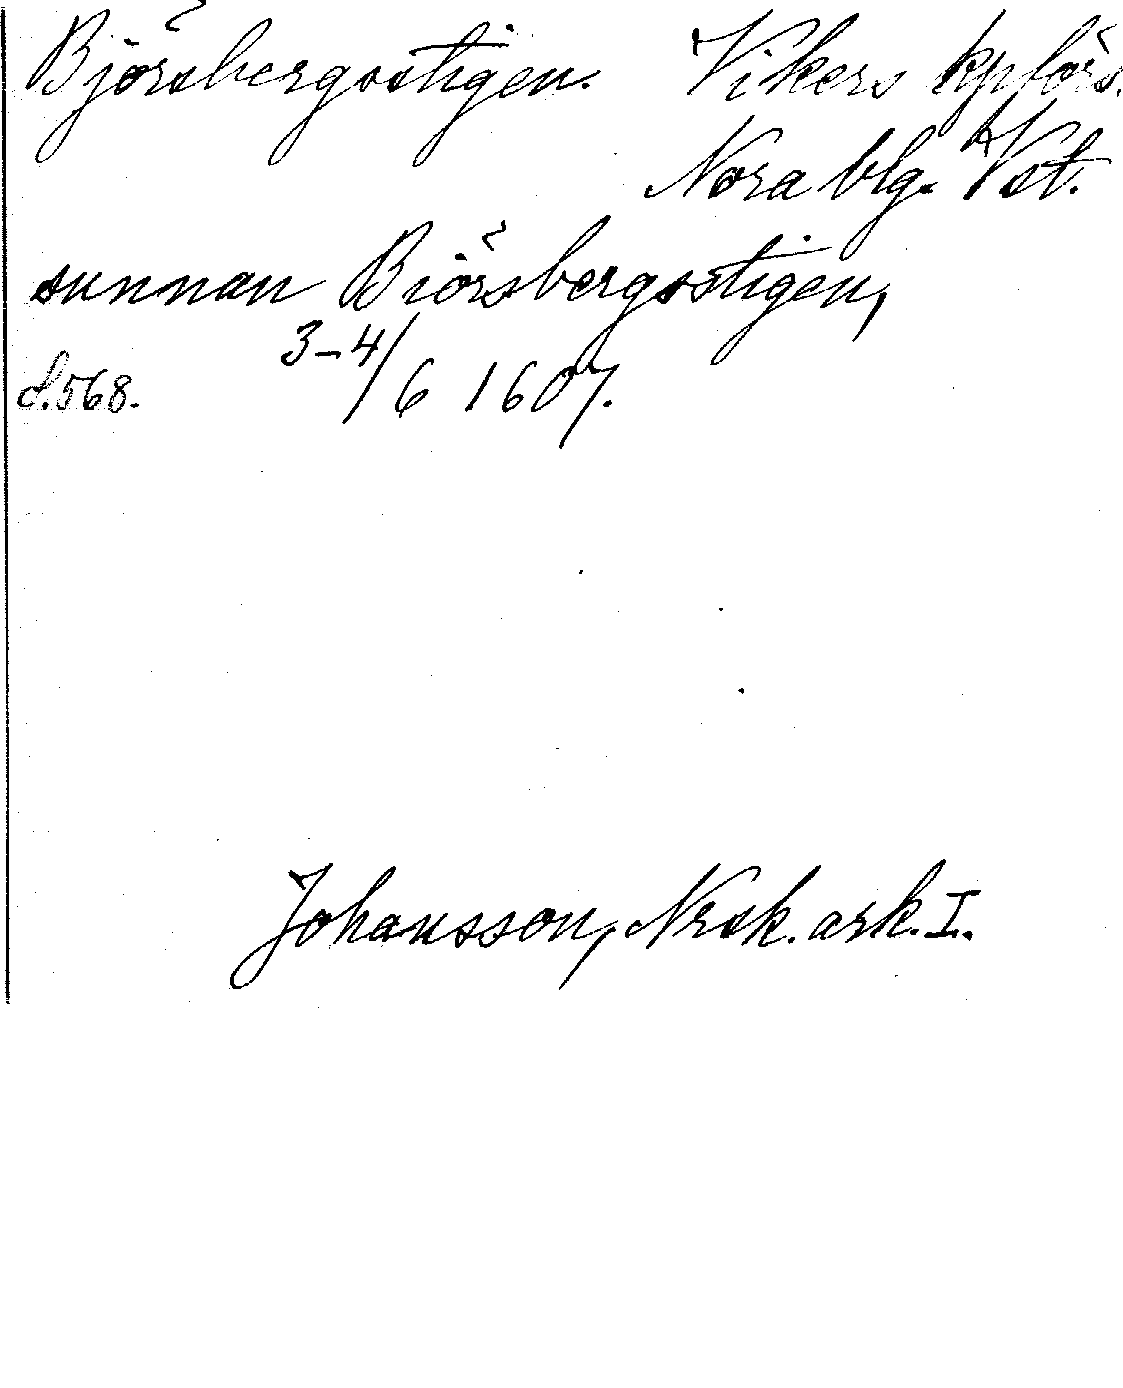 Björsbergsstigen. Vikers kpförs.
Nora blg. Vst.
sunnan Biörsbergsstigen,
3-4/6 1607.
S. 568.
Johansson, Nrsk. ark. I.